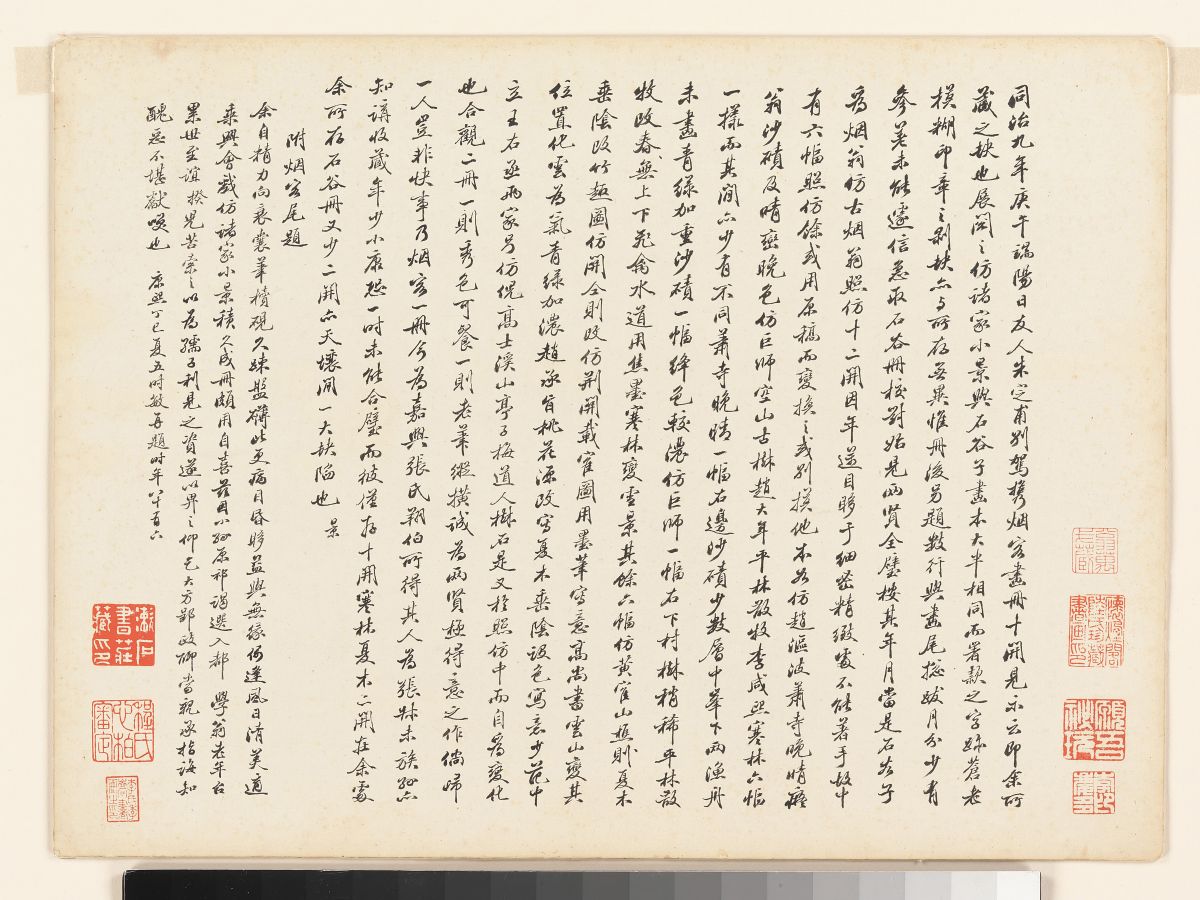 同治九年庚午端陽日友人朱定甫別駕攜烟客畫冊十開見示云即余所
藏之缺也展閱之仿諸家小景與石谷子畫本大半相同而署款之字跡蒼老
模糊印章之剥缺亦與所存無異惟冊後另題數行與畫尾總跋月分少有
參差未能遽信急取石谷冊校對始見兩賢全璧按其年月當是石谷子
為烟翁仿古烟翁照仿十二開因年邁目眵于細密精緻處不能著手故中
有六幅照仿餘或用原稿而變換之或別摸他本如仿趙漚波蕭寺晚晴癡
翁沙磧及晴巒晚色仿巨師空山古樹趙大年平林散牧李咸熙寒林六幅
一樣而其間亦少有不同蕭寺晚晴一幅右邊沙磧少數層中峯下兩漁舟
未畫青綠加重沙磧一幅絳色較濃仿巨師一幅右下村樹稍稀平林散
牧改春無上下飛禽水道用焦墨寒林變雪景其餘六幅仿黃崔山樵則夏木
垂陰改竹趣圖仿關仝則改仿荆關載崔圖用墨筆寫意高尚書雲山變其
位置化雲為氣青綠加濃趙承旨桃花源改寫夏木垂陰設色寫意少范中
立王右丞兩家另仿倪高士溪山亭子梅道人樹石是又於照仿中而自為變化
也合觀二冊一則秀色可餐一則老筆縱橫誠為兩賢極得意之作倘歸
一人豈非快事乃烟客一冊今為嘉興張氏翔伯所得其人為張叔未族孫亦
知講收藏年少小康恐一時未能合璧而彼僅存十開寒林夏木二開在余處
余所存石谷冊又少二開亦天壤間一大缺陷也 景
附烟客尾題
余自精力向衰囊筆櫝硯久疎盤礴此更病目昏眵益與無緣何逢風日清美適
乘興會戲仿諸家小景積久成冊頗用自喜茲因小孫原祁謁選入都 學翁老年台
累世至誼揆兒苦索之以為孺子利見之資遂以畀之仰乞大方郢政聊當親承指誨知
醜惡不堪獻噱也 康熙丁巳夏五時敏再題時年八十有六
潄石
書莊
藏印
楊氏
心柏
審定
顧吾
秋瑀